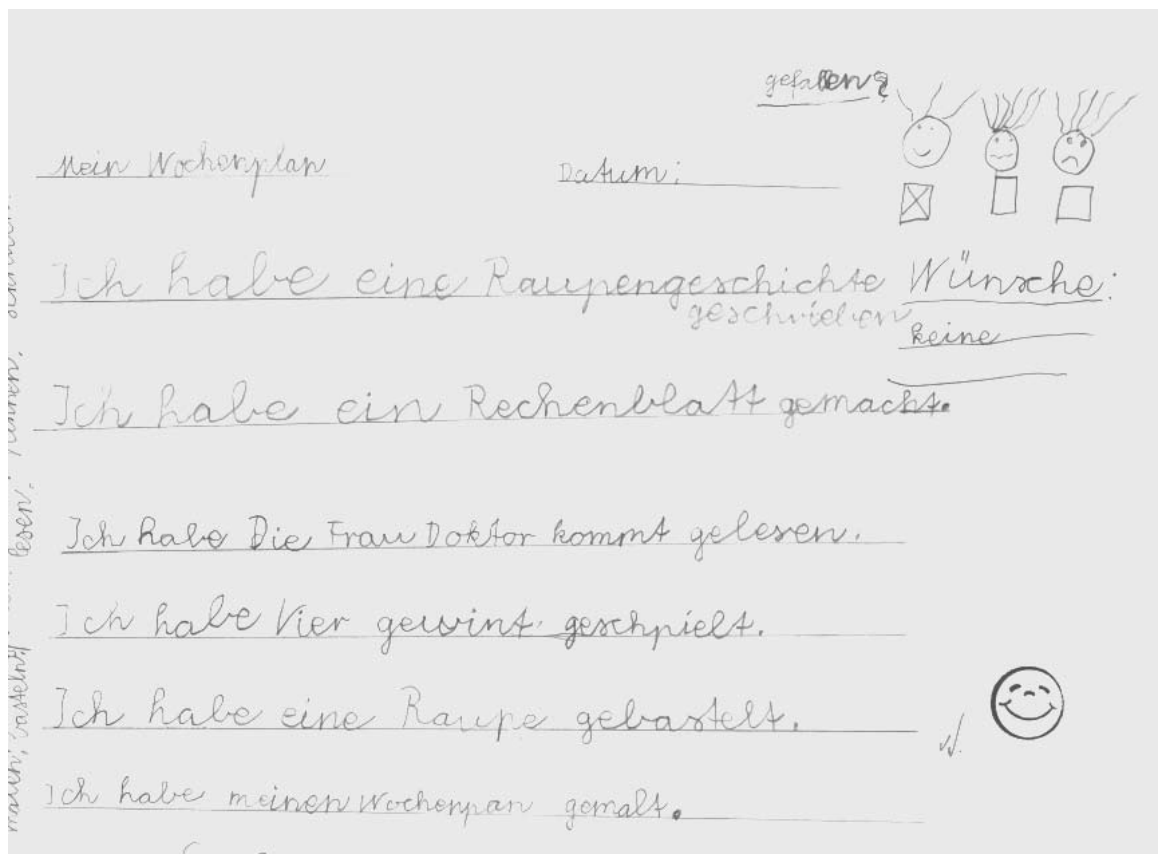 gefallen?
Mein Wochenplan Datum:
Ich habe eine Raupengeschichte Wünsche:
geschrieben
keine
Ich habe ein Rechenblatt gemacht.
Ich habe Die Frau Doktor kommt gelesen.
Ich habe Vier gewint geschpielt.
Ich habe eine Raupe gebastelt.
Ich habe meinen Wochenpan gemalt.
malen, basteln, lesen.